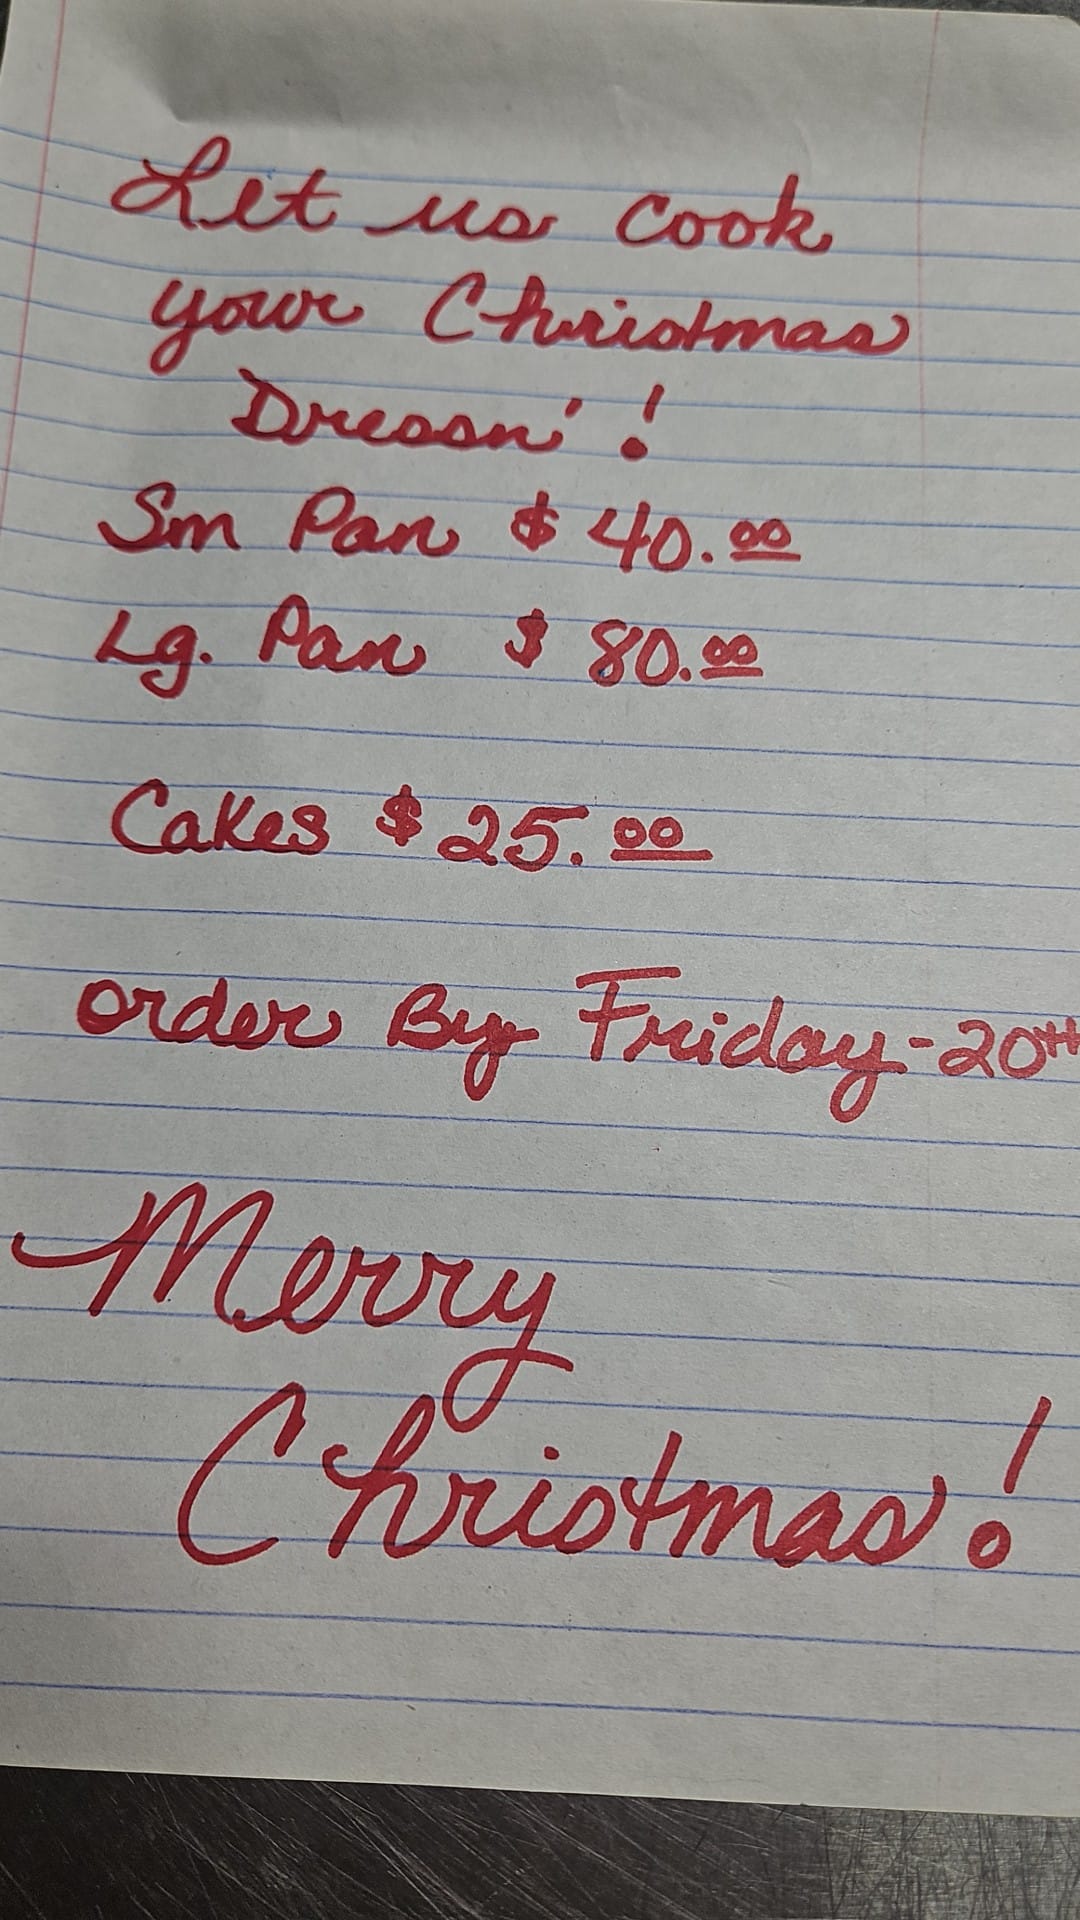 Let us cook
your Christmas
Dressn'!
Sm Pan $40.00
Lg. Pan $80.00
Cakes $25.00
order By Friday-20TH
Merry
Christmas!